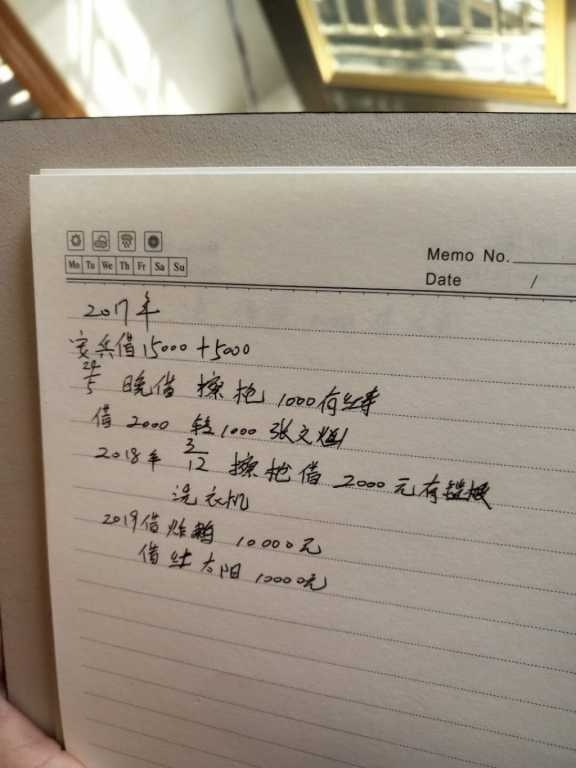 Memo No.
Mo Tu We Th Fr Sa Su
Date /
2017年
家兵借15000+5000
24/5 晚借 擦 1000有
借 2000 转1000 张文
2018年 3/12 擦 借 2000元有
洗衣机
2019借炸鹅 10000元
借红太阳 10000元